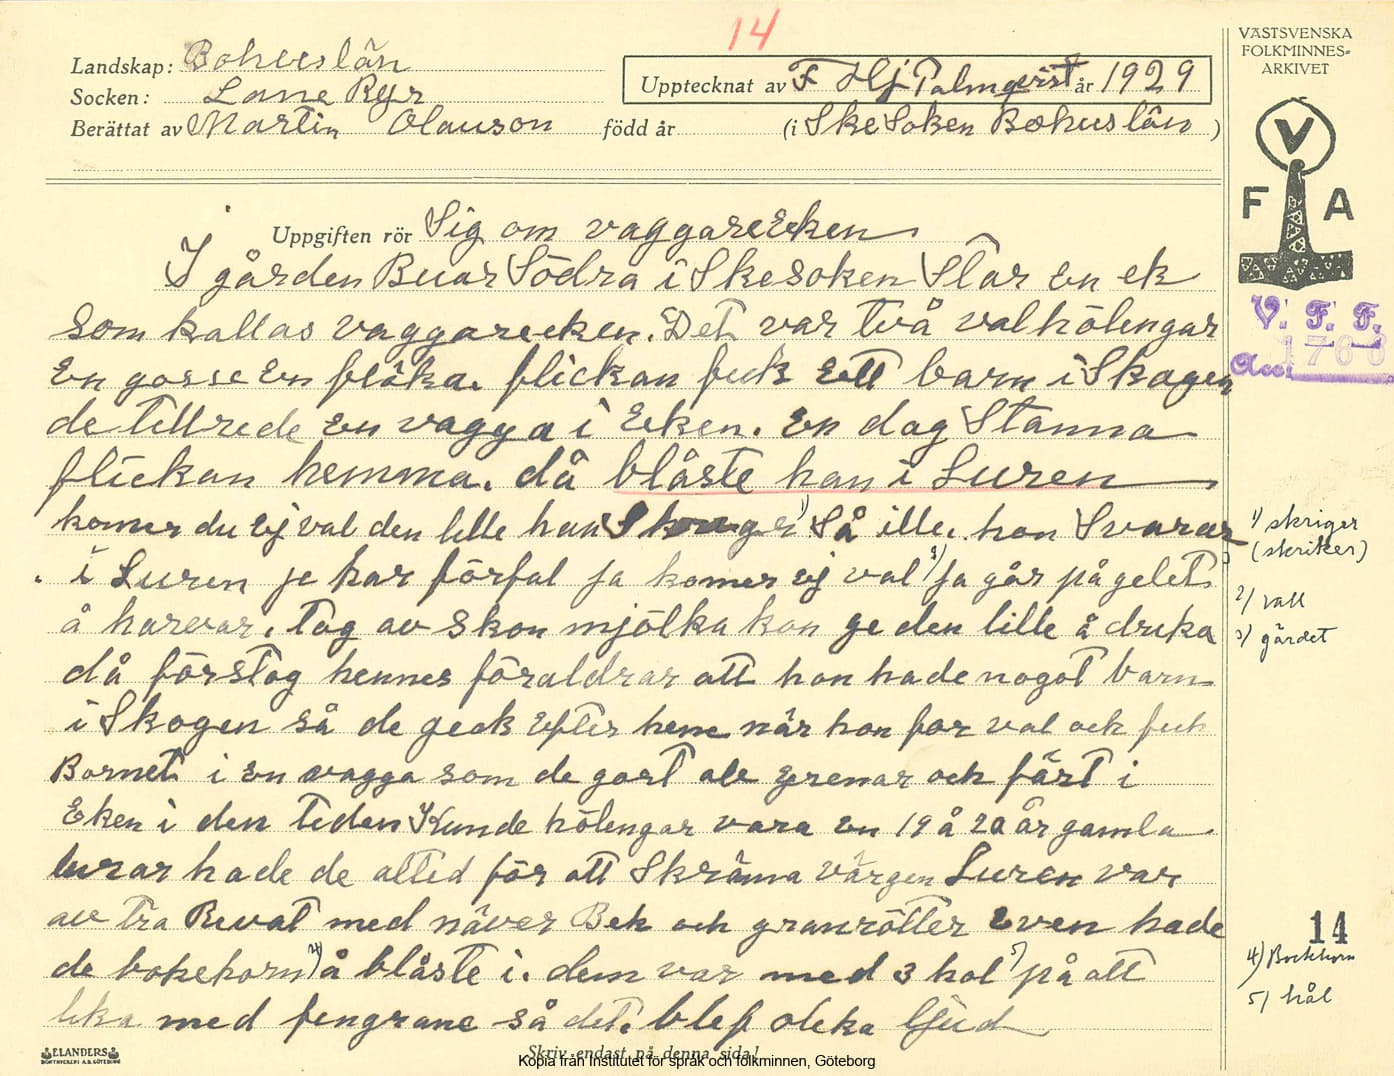 14
VÄSTSVENSKA
FOLKMINNES=
ARKIVET
Landskap: Bohuslän
Socken: Lane Ryr
Upptecknat av F Hj Palmqvist år 1929
Berättat av Martin Olauson född år (i Ske Soken Bohuslän)
V
F A
Uppgiften rör Sig om vaggareEken
I gården Buar Södra i Skesoken Står En ek
Som kallas vaggareeken. Det var två valhölengar
En gosse En flöka. flickan feck Ett barn i Skagen
V. F. F.
Acc. 1768
de tellrede En vagga i Eken. En dag Stanna
flickan hemma. då blåste han i Luren
komer du ej val den lelle han 1) Så ille. hon Svarar
1) skriger
(skriker)
i Luren je har förfal ja komer ej val 2) Ja går på gelet 3)
2) vall
å harvar. Tag av Skon mjölka kan ge den lille å dreka
3) gärdet
då förstog hennes föraldrar att hon hade nogot barn
i Skogen så de geck Efter hene når hon for val och feck
Barnet i En vagga som de gort ale grenar och färt i
Eken i den teden Kunde hölengar vara En 19 å 20 år gamla
lurar hade de alted för att Skräma värgen Luren var
av Tra Bevat med näver Bek och granrötter Even hade
14
de bokehorn 4) å blåste i. dem var med 3 hol 5) på att
4) Bockhorn
5) hål
leka med fengrane så det blef oleka ljud
ELANDERS
BOKTRYCKERI A.B. GÖTEBORG
Skriv endast på denna sida!
Kopia från Institutet för språk och folkminnen, Göteborg